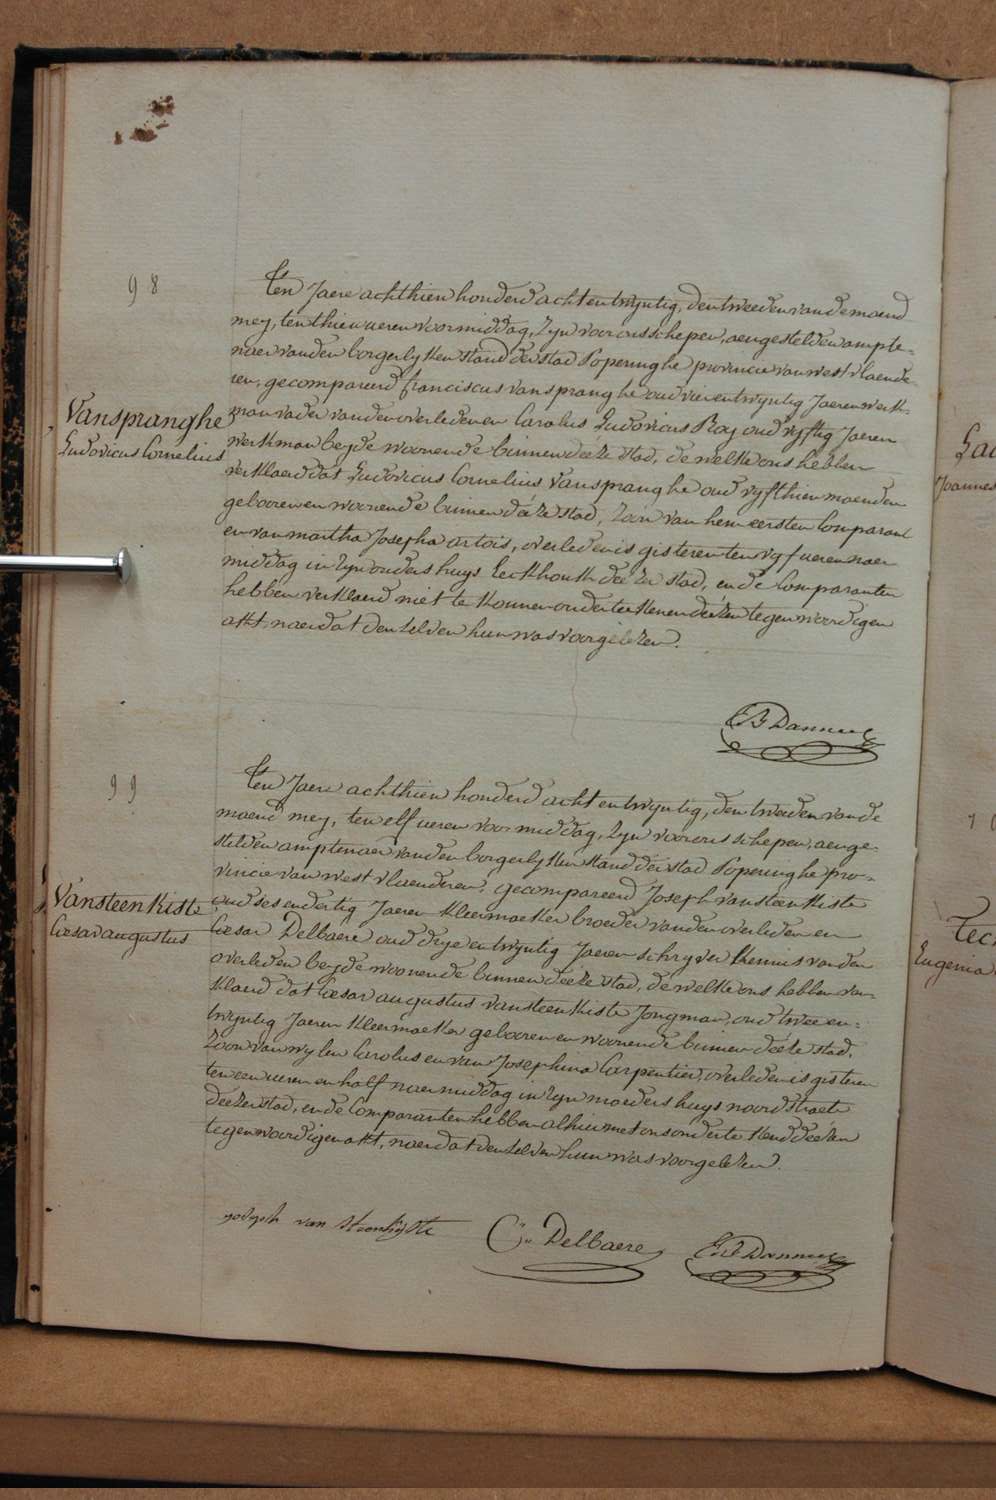 98
Vanspranghe
Ludovicus Cornelius
Ten Jaere achthien honderd acht en twyntig, den tweeden van de maend
mey, ten thien ueren voormiddag, zyn voor ons schepen, aengestelden ampte=
naer van den borgerlyken stand der stad Poperinghe provincie van west vlaende=
ren, gecompareerd franciscus vanspranghe oud vier en twyntig Jaeren werk-
man vader van den overledenen Carolus Ludovicus Ray oud vyftig Jaeren
werkman beyde woonende binnen deéze stad, de welke ons hebben
verklaerd dat Ludovicus Cornelius Vanspranghe oud vyfthien maenden
gebooren en woonende binnen déeze stad, zoon van hem eersten Comparant
en van martha Josepha artois, overleden is gisteren ten vyf ueren naer
middag in zyn ouders huys Eeckhoutk deézer stad, en de Comparanten
hebben verklaerd niet te konnen onderteekenen deézen tegenwoordigen
akt, naer dat den zelven hun was voorgelezen.
99
Vansteenkiste
Cæsar augustus
Ten Jaere achthien honderd acht en twyntig, den tweeden van de
maend mey, ten elf ueren voormiddag, zyn voor ons schepen, aenge=
stelden amptenaer van den borgerlyken stand der stad Poperinghe pro=
vincie van west vlaenderen, gecompareerd Joseph vansteenkiste
oud ses en dertig Jaeren kleermaeker broeder van den overleden en
Cæsar Delbaere oud drye en twyntig Jaeren schryver kennis van den
overleden beyde woonende binnen deéze stad, de welke ons hebben ver=
klaerd dat Cæsar augustus vansteenkiste Jongman, oud twee en=
twyntig Jaeren kleermaeker gebooren en woonende binnen deéze stad,
zoon van wylen Carolus en van Josephina Carpentier, overleden is gisteren
ten een ueren en half naermiddag in zyn moeders huys noordstraete
deézer stad, en de Comparanten hebben alhier met ons onderteekend deézen
tegenwoordigen akt, naer dat den zelven hun was voorgelezen.
joseph van steenkiste
C. Delbaere
Joannes
Eugenia